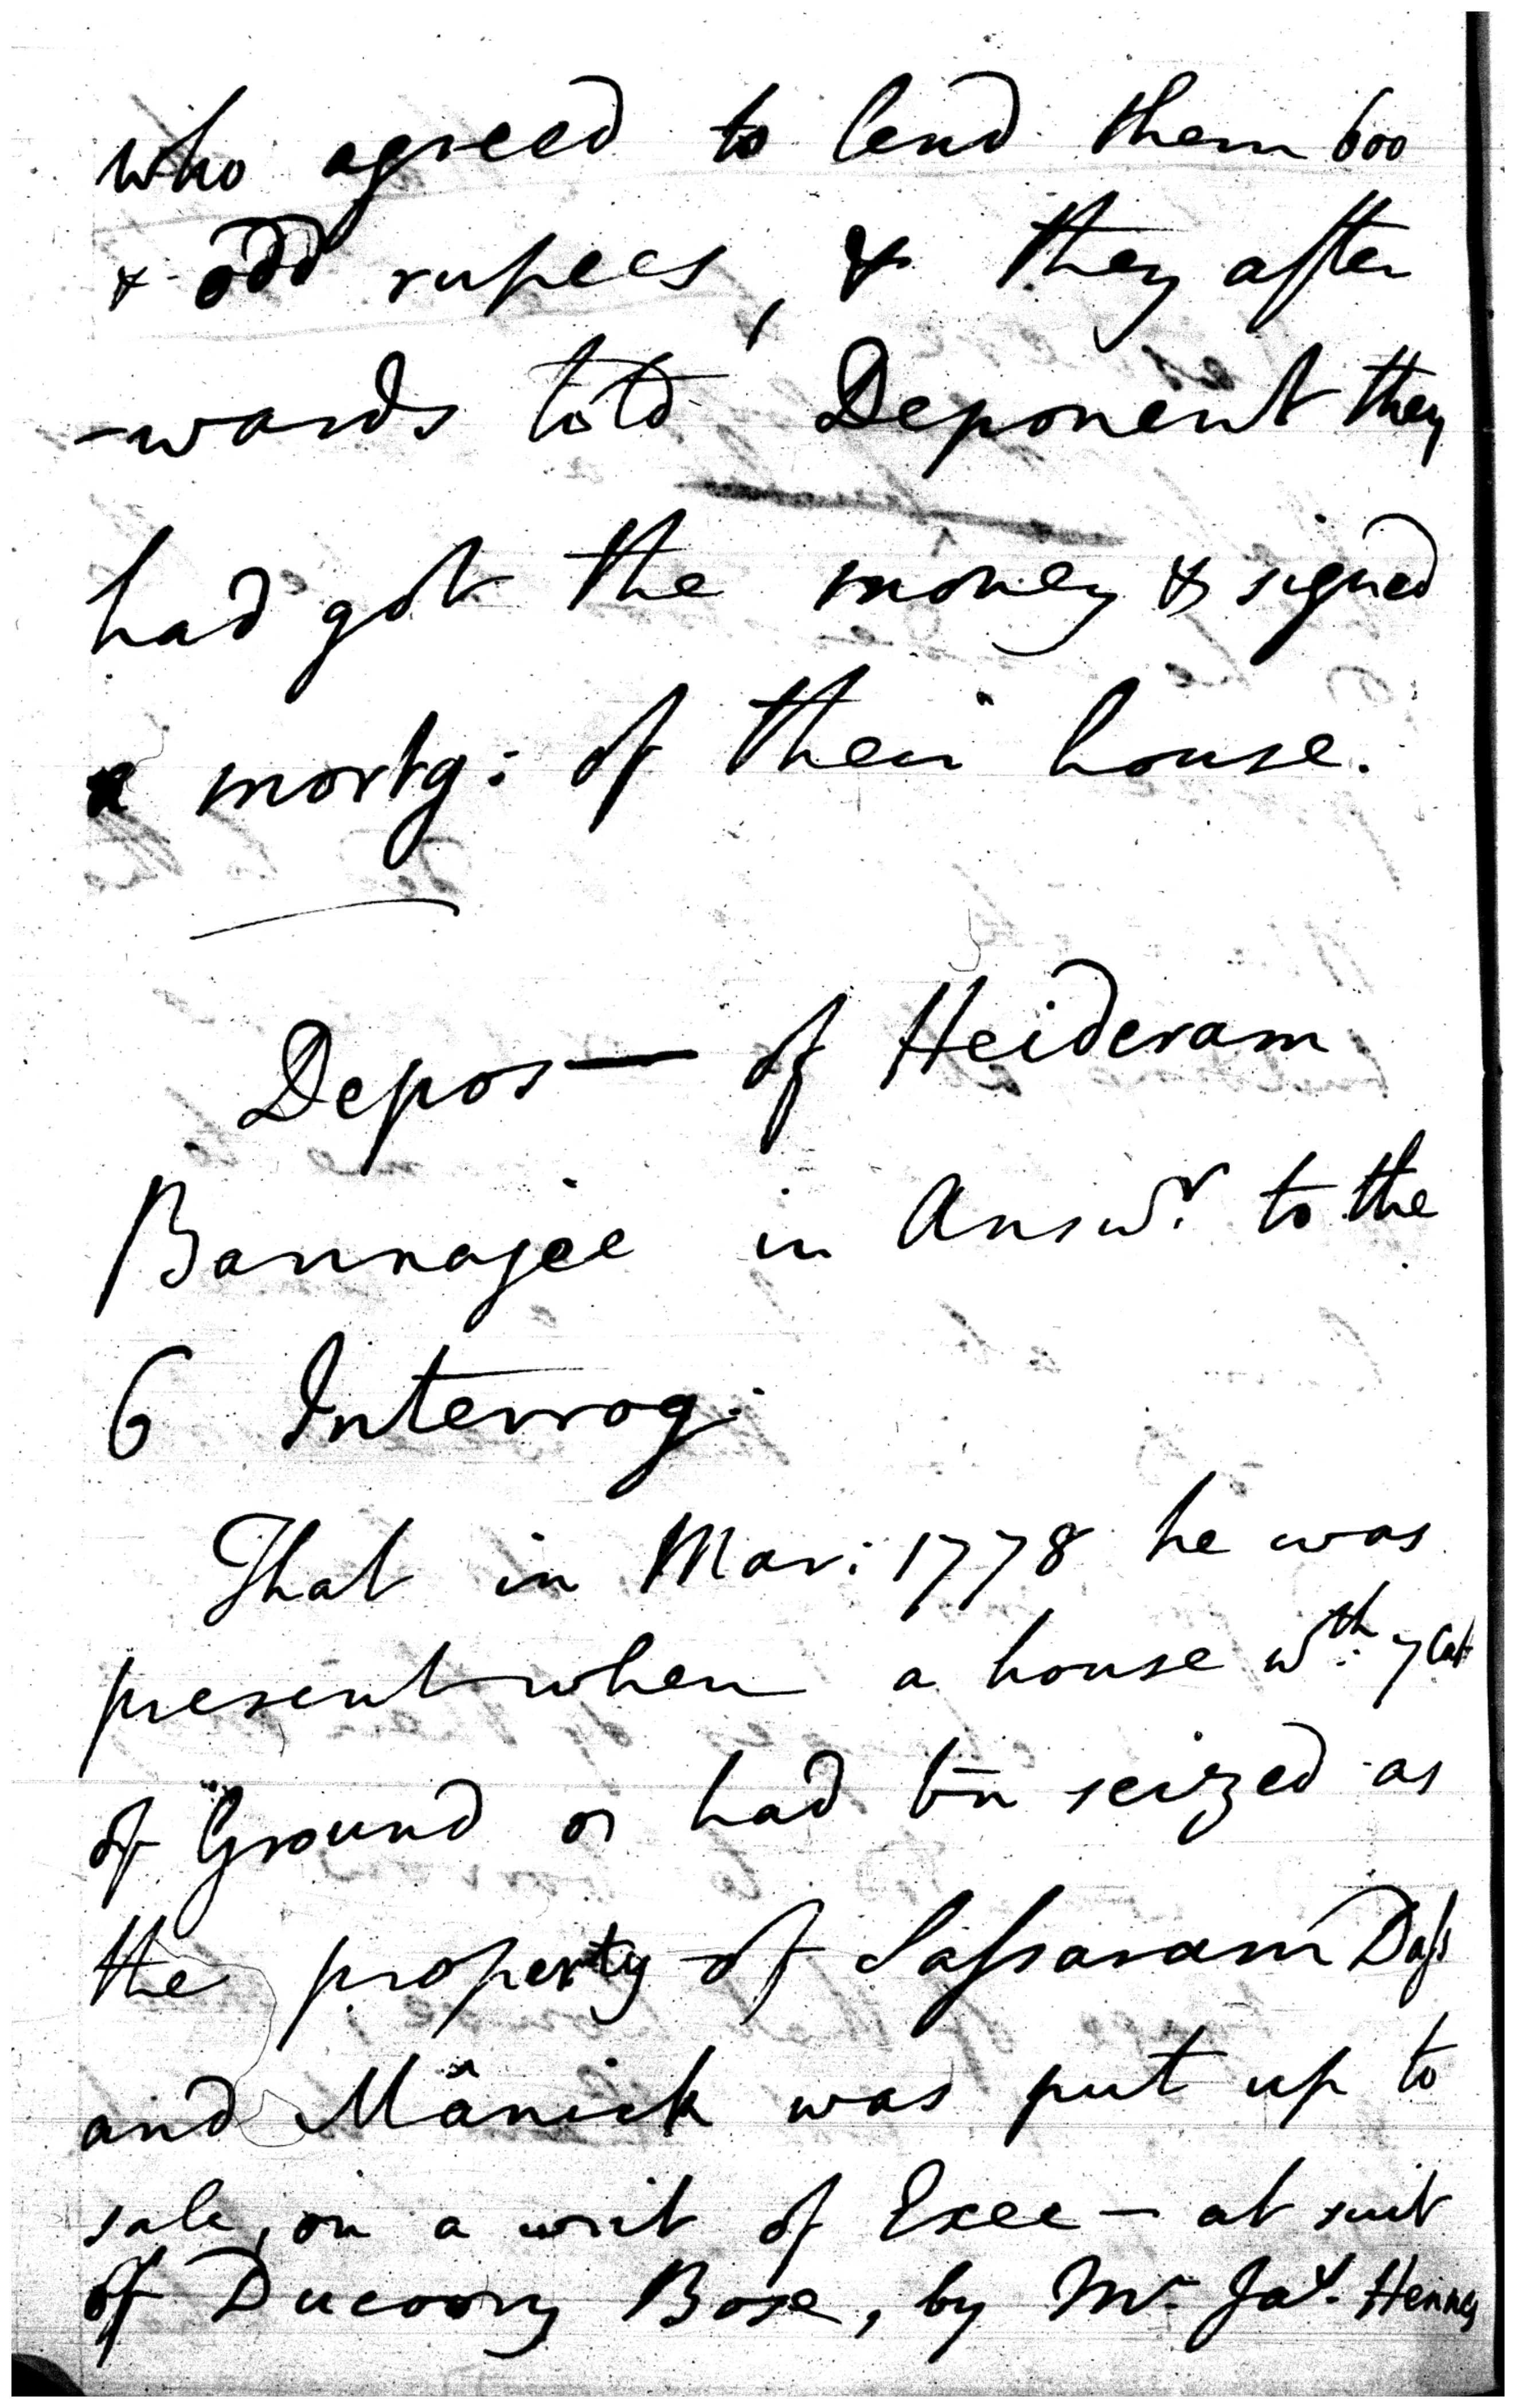 who agreed to lend them 600
& odd rupees, & they after
-wards told Deponent they
had got the money & signed
a mortg: of their house.
Depos— of Heideram
Bannajee in Answr. to the
6 Interrog:
That in Mar: 1778 he was
present when a house wth. 7 Cot
of Ground or had bn seized as
the property of Saſsaram Daſs
and Mânick was put up to
sale, on a writ of Exec— at suit
of Ducoory Bose, by Mr. Jas. Henney